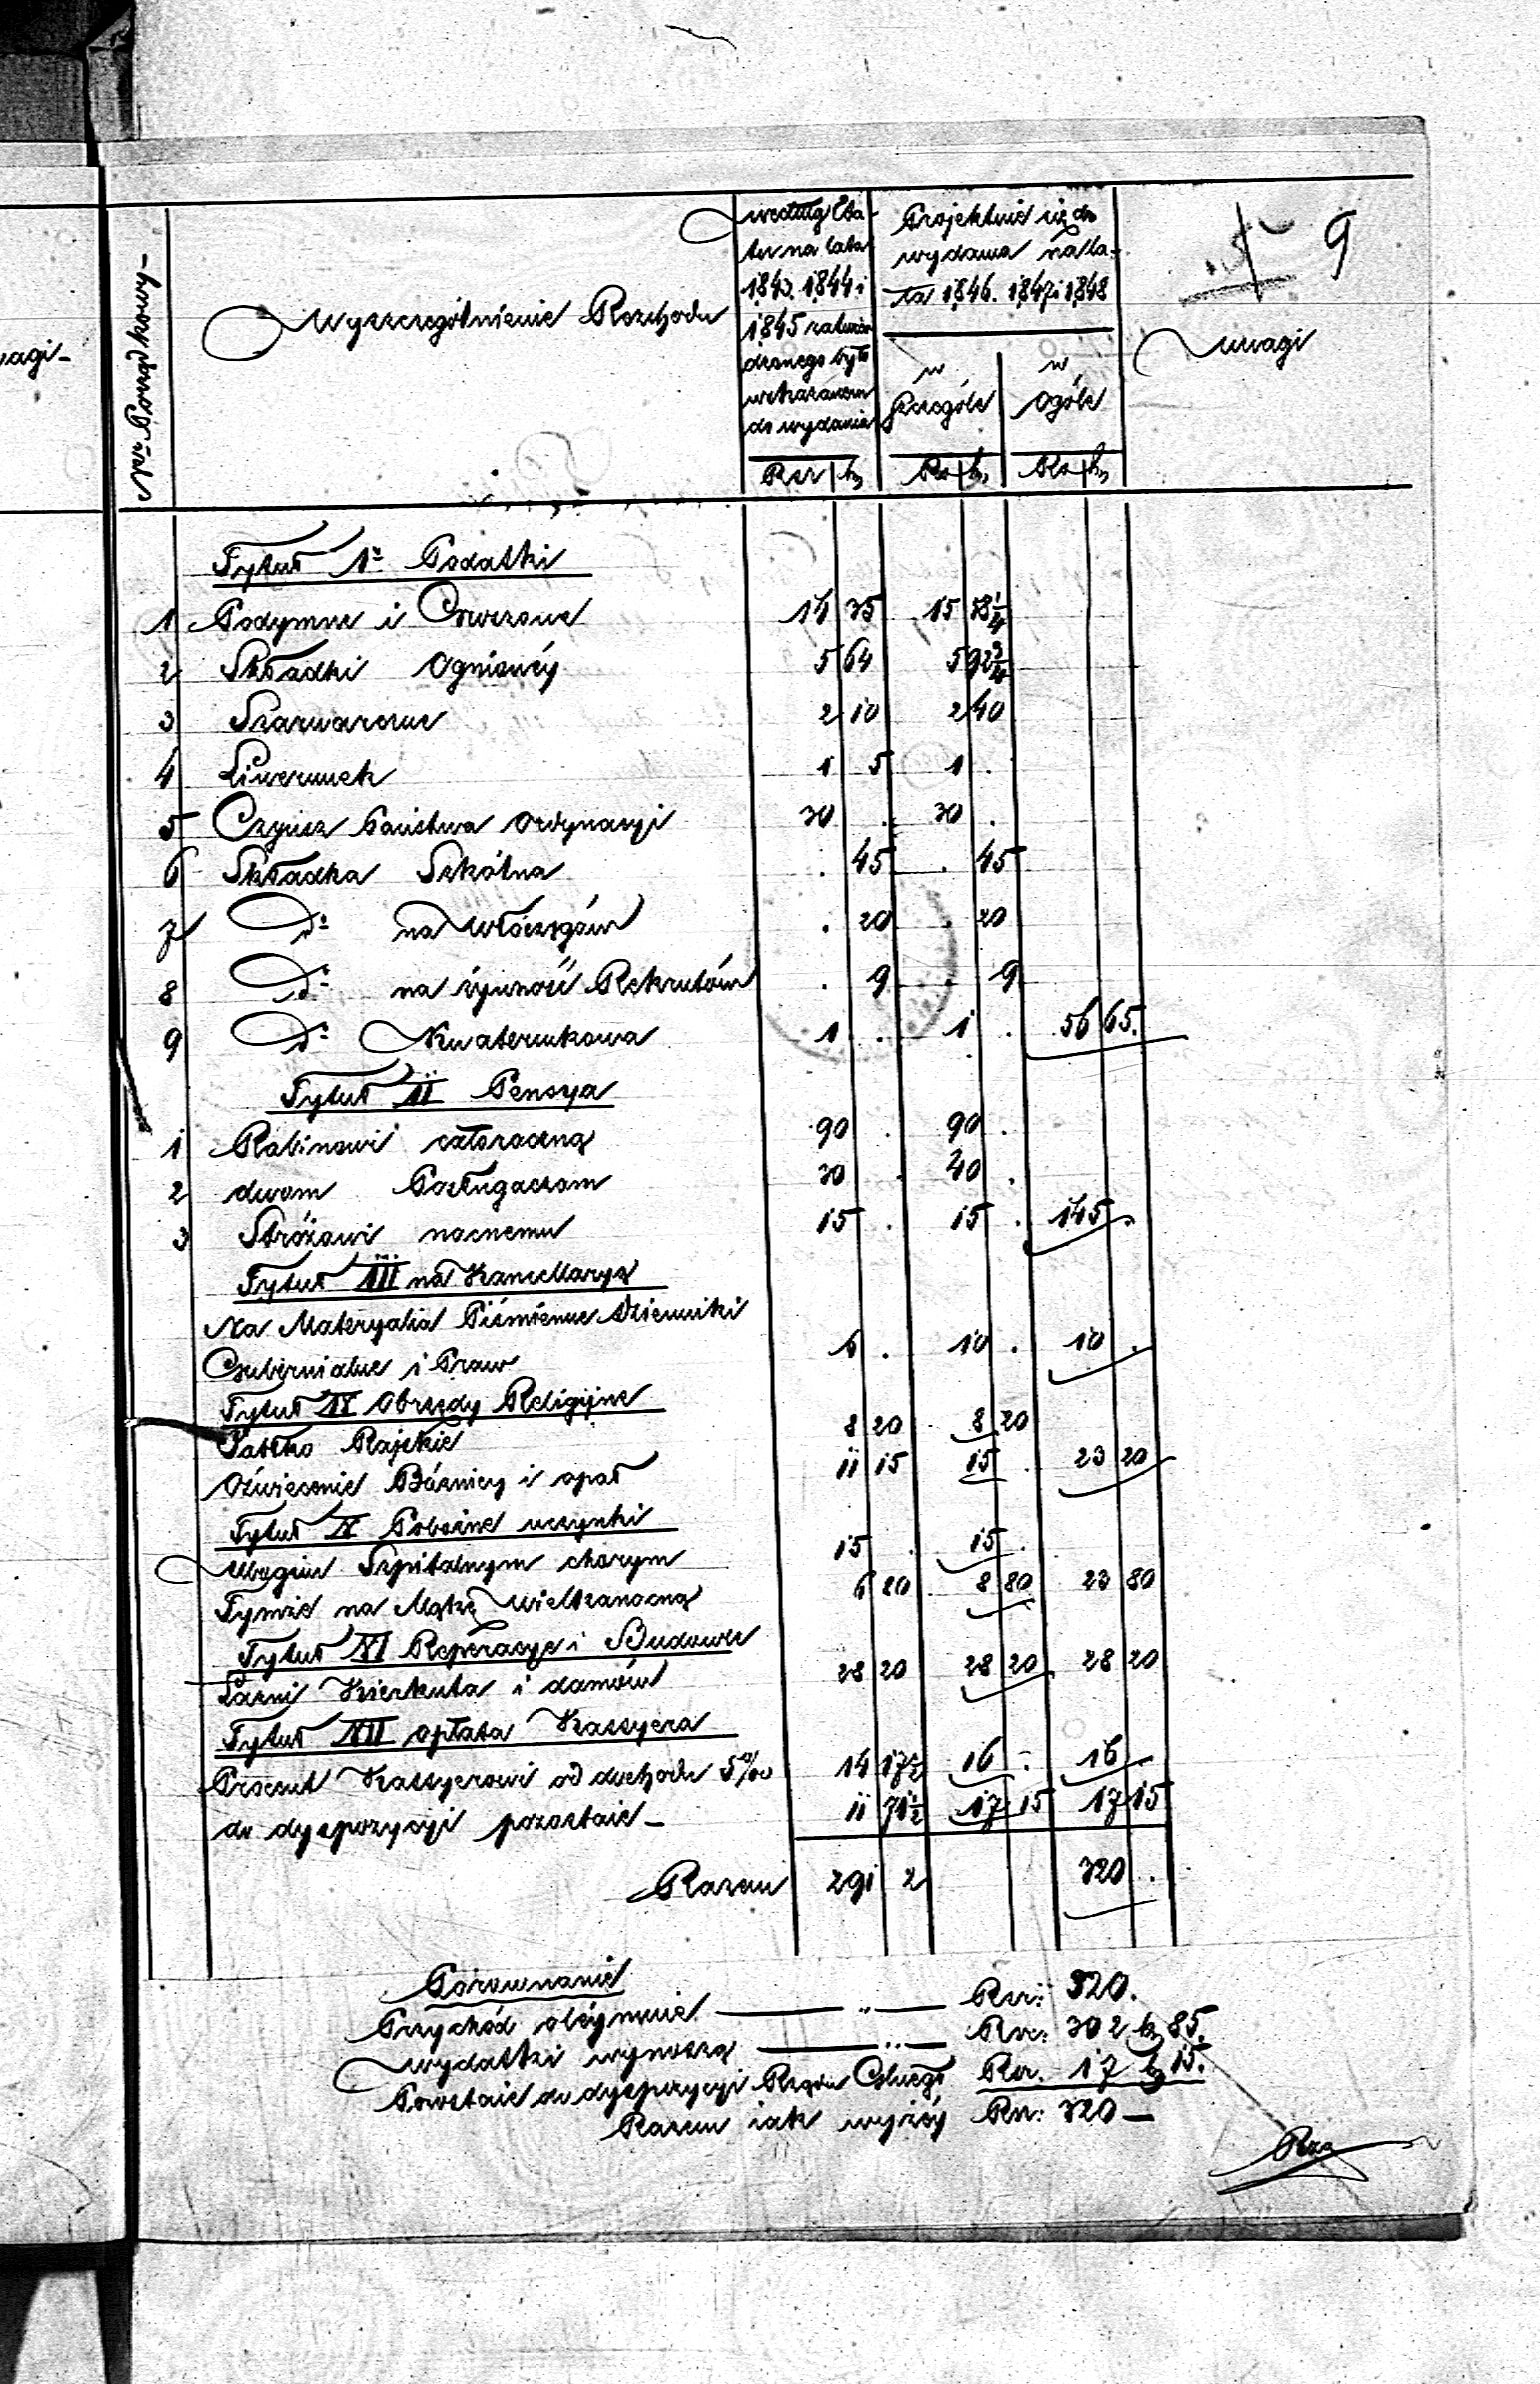 9
Nr Porządkowy
Wyszczególnienie Rozchodu
według Eta-
tu na lata
1843. 1844 i
1845 zatwier
dzonego było
wskazanem
do wydania
Projektuie się do
wydania na la-
ta 1846. 1847 i 1848
w Szczególe
w Ogóle
Uwagi
Rsr k. Rs k. Rs k.
Tytuł 1 Podatki
1 Podymne i Czwerone 14 35 15 78 1/4
2 Składki Ogniowéy 5 64 5 92 3/4
3 Szarwarzne 2 10 2 40
4 Liwerunek 1 5 1 .
5 Czynsz Państwa Ordynacyi 30 . 30 .
6 Składka Szkólna . 45 . 45
7 D° na Włóczęgów . 20 . 20
8 D° na żywność Rekrutów . 9 . 9
9 D° Kwaterunkowa 1 . 1 . 56 65.
Tytuł II Pensya
1 Rabinowi całoroczną 90 . 90 .
2 dwom Posługaczom 30 . 40 .
3 Stróżowi nocnemu 15 . 15 . 145 .
Tytuł III na Kancellaryą
Na Materyalia Piśmienne Dzienniki
Gubernialne i Praw 6 . 10 . 10 .
Tytuł IV Obrzędy Religijne
Jabłko Rajskie 8 20 8 20
Oświecenie Bóżnicy i opał 11 15 15 . 23 20
Tytuł V Pobożne uczynki
Ubogim Szpitalnym chorym 15 . 15 .
Tymże na Mąkę Wielkanocną 6 20 8 80 23 80
Tytuł VI Reperacye i Budowle
Łaźni Kierkuta i domów 28 20 28 20 28 20
Tytuł VII opłata Kassyera
Procent Kassyerowi od dochodu 5 % 14 17 1/2 16 - 16
do dyspozycyi pozostaie - 11 71 1/2 17 15 17 15
Razem 291 2 320 .
Porownanie
Przychód obéymuie " Rsr: 320.
Wydatki wynoszą " Rsr: 302 k 85.
Pozostaie do dyspozycyi Rządu Rsr. 17 k 15.
Razem iak wyżéy Rsr: 320 —